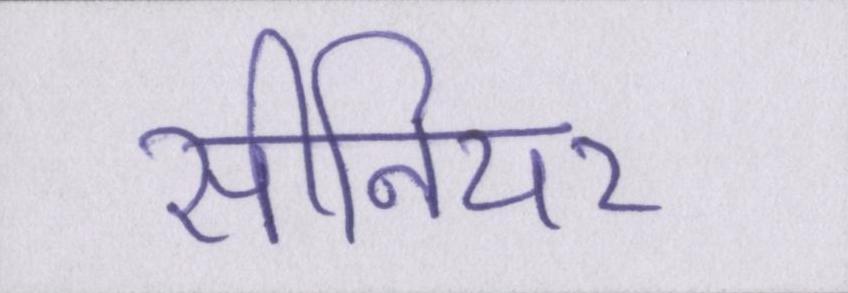 सीनियर